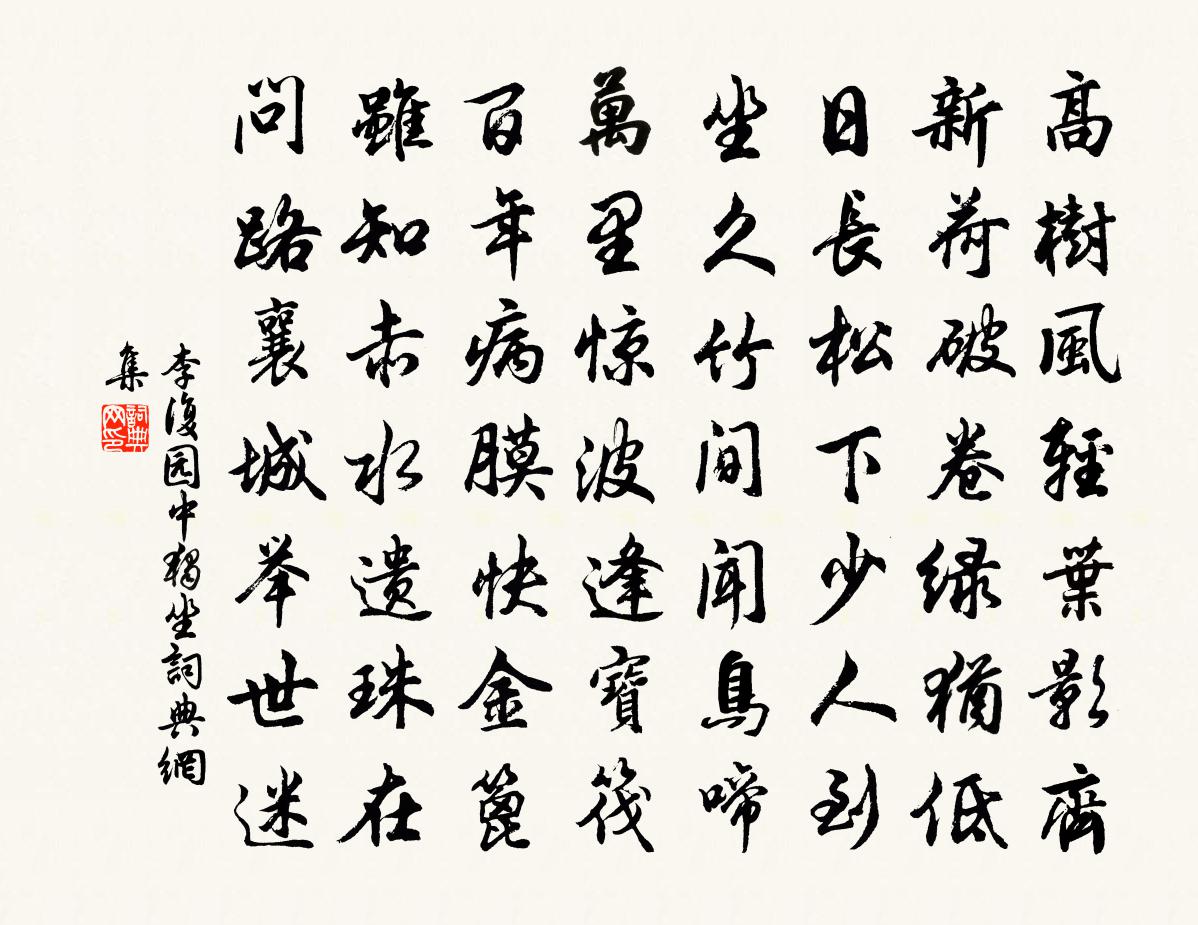 高樹風輕葉影齊
新荷破卷绿猶低
日長松下少人到
坐久竹间闻鳥啼
萬里惊波逢寶筏
百年病膜快金篦
雖知赤水遗珠在
问路襄城举世迷
李復园中獨坐詞典網
集
詞典网印